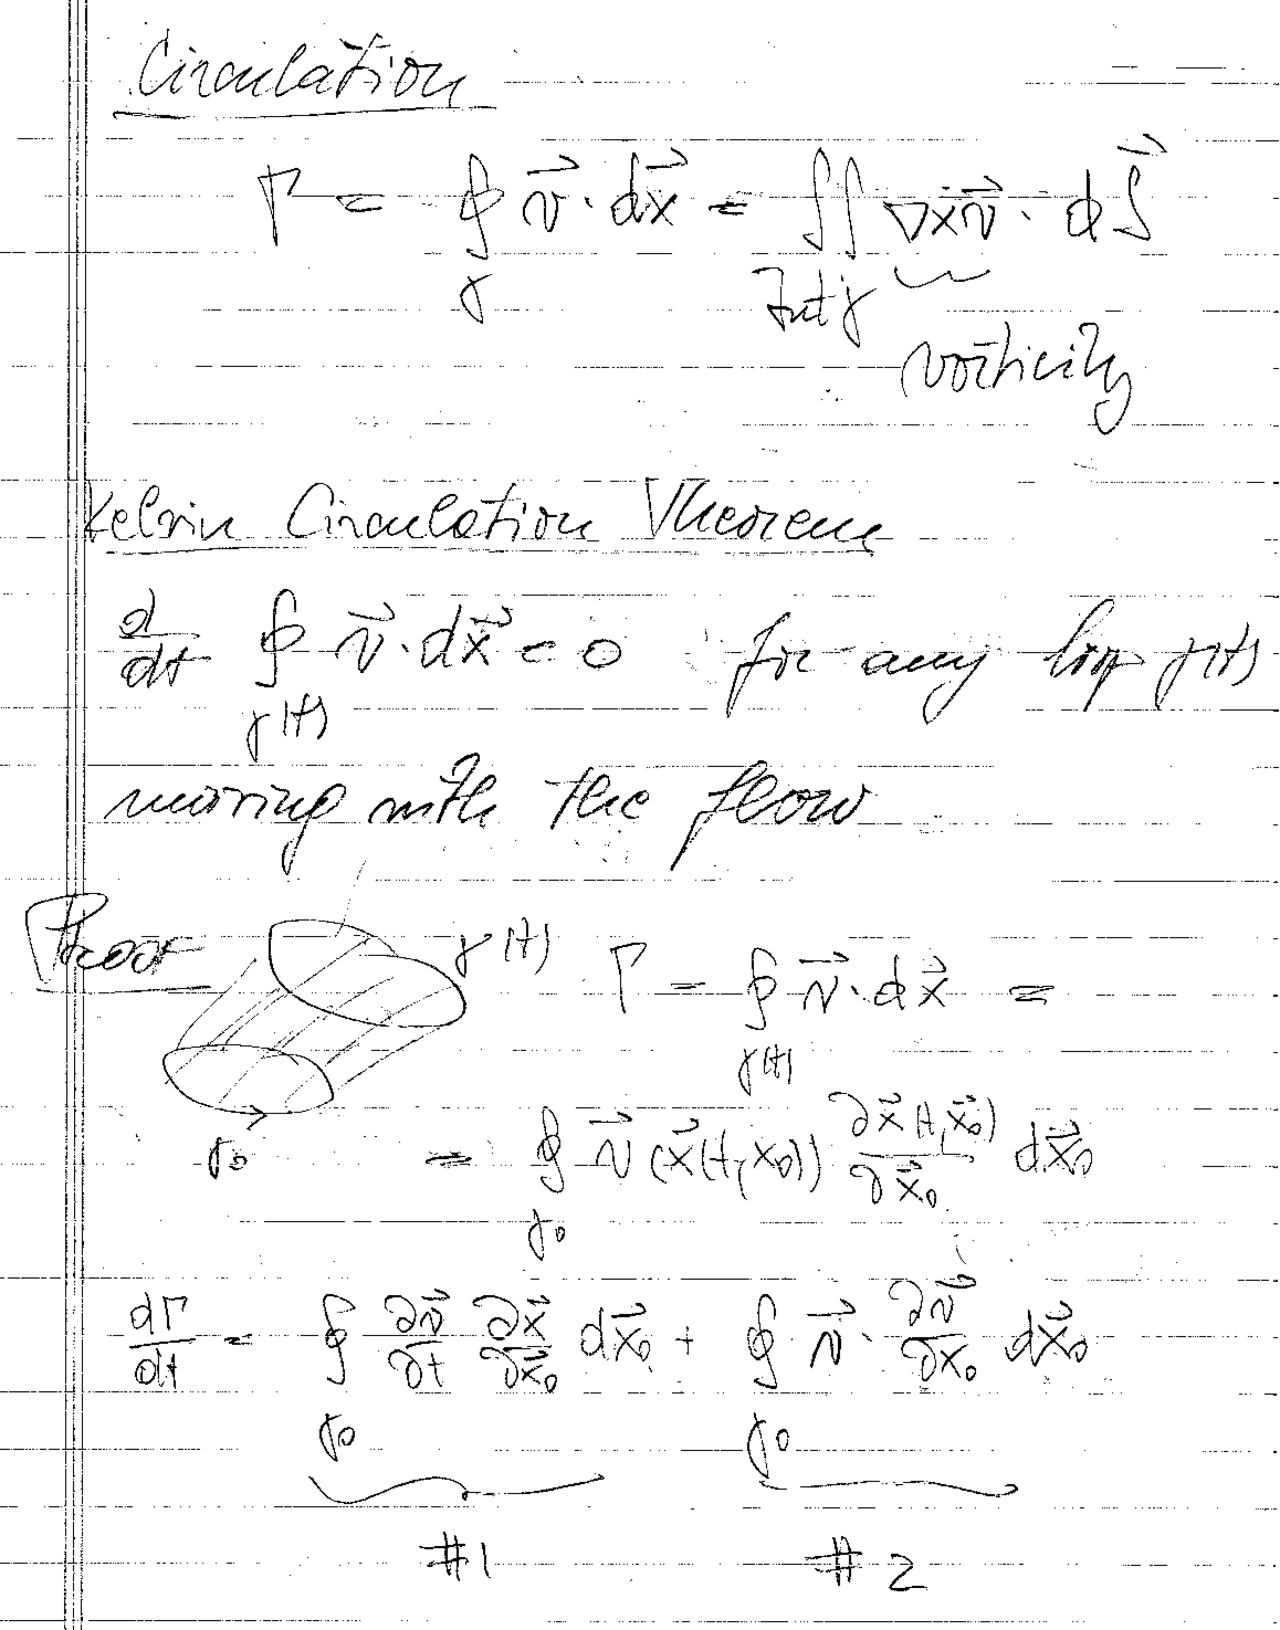 Circulation
Γ = ∮_γ v⃗ · dx⃗ = ∬_{Int γ} ∇×v⃗ · dS⃗
vorticity
Kelvin Circulation Theorem
d/dt ∮_{γ(t)} v⃗ · dx⃗ = 0 for any loop γ(t)
moving with the flow
Proof γ(t) Γ = ∮_{γ(t)} v⃗ · dx⃗ =
γ₀ = ∮_{γ₀} v⃗ (x⃗(t, x₀)) ∂x⃗(t, x⃗₀)/∂x⃗₀ dx⃗₀
dΓ/dt = ∮_{γ₀} ∂v⃗/∂t ∂x⃗/∂x⃗₀ dx⃗₀ + ∮_{γ₀} v⃗ · ∂v⃗/∂x₀ dx⃗₀
#1 #2